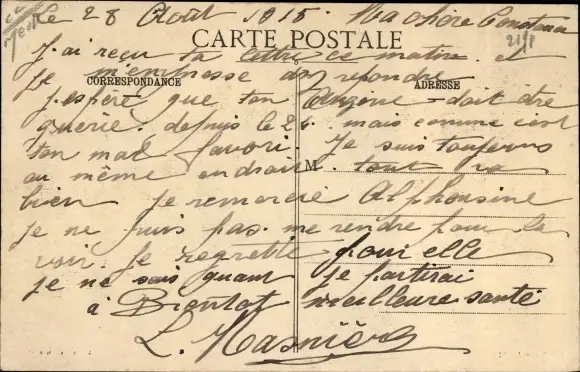 Le 28 Août 1915. Ma chère Constance
21/8
CARTE POSTALE
J'ai reçu ta lettre ce matin. et
je m'empresse d'y repondre
CORRESPONDANCE
ADRESSE
j'espère que ton Angine doit être
guérie. depuis le 26. mais comme c'est
ton mal favori. Je suis toujours
au même endroit. tout va
M
bien Je remercie Alphonsine
je ne puis pas me rendre pour la
voir. Je regrette pour elle
Je ne sais quant je partirai
à Bientot meilleure santé
L. Masnière